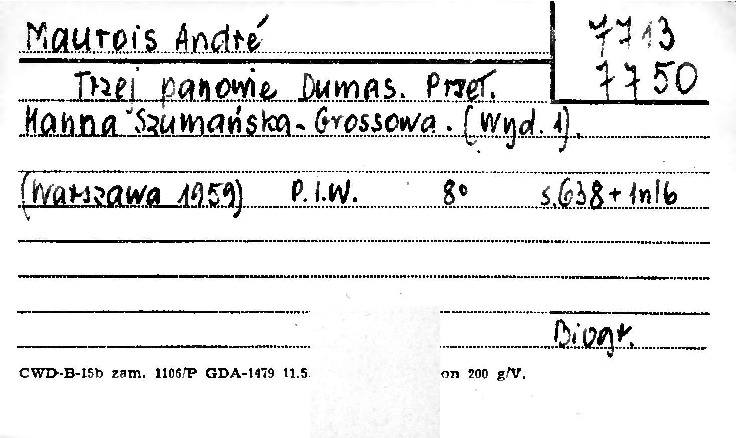 Maurois André
7713
7750
Trzej panowie Dumas. Przeł.
Hanna Szumańska-Grossowa. (Wyd. 1).
(Warszawa 1959) P.I.W. 8° s.638+1nlb
Biogr.
CWD-B-15b zam. 1106/P GDA-1479 11.5 on 200 g/V.